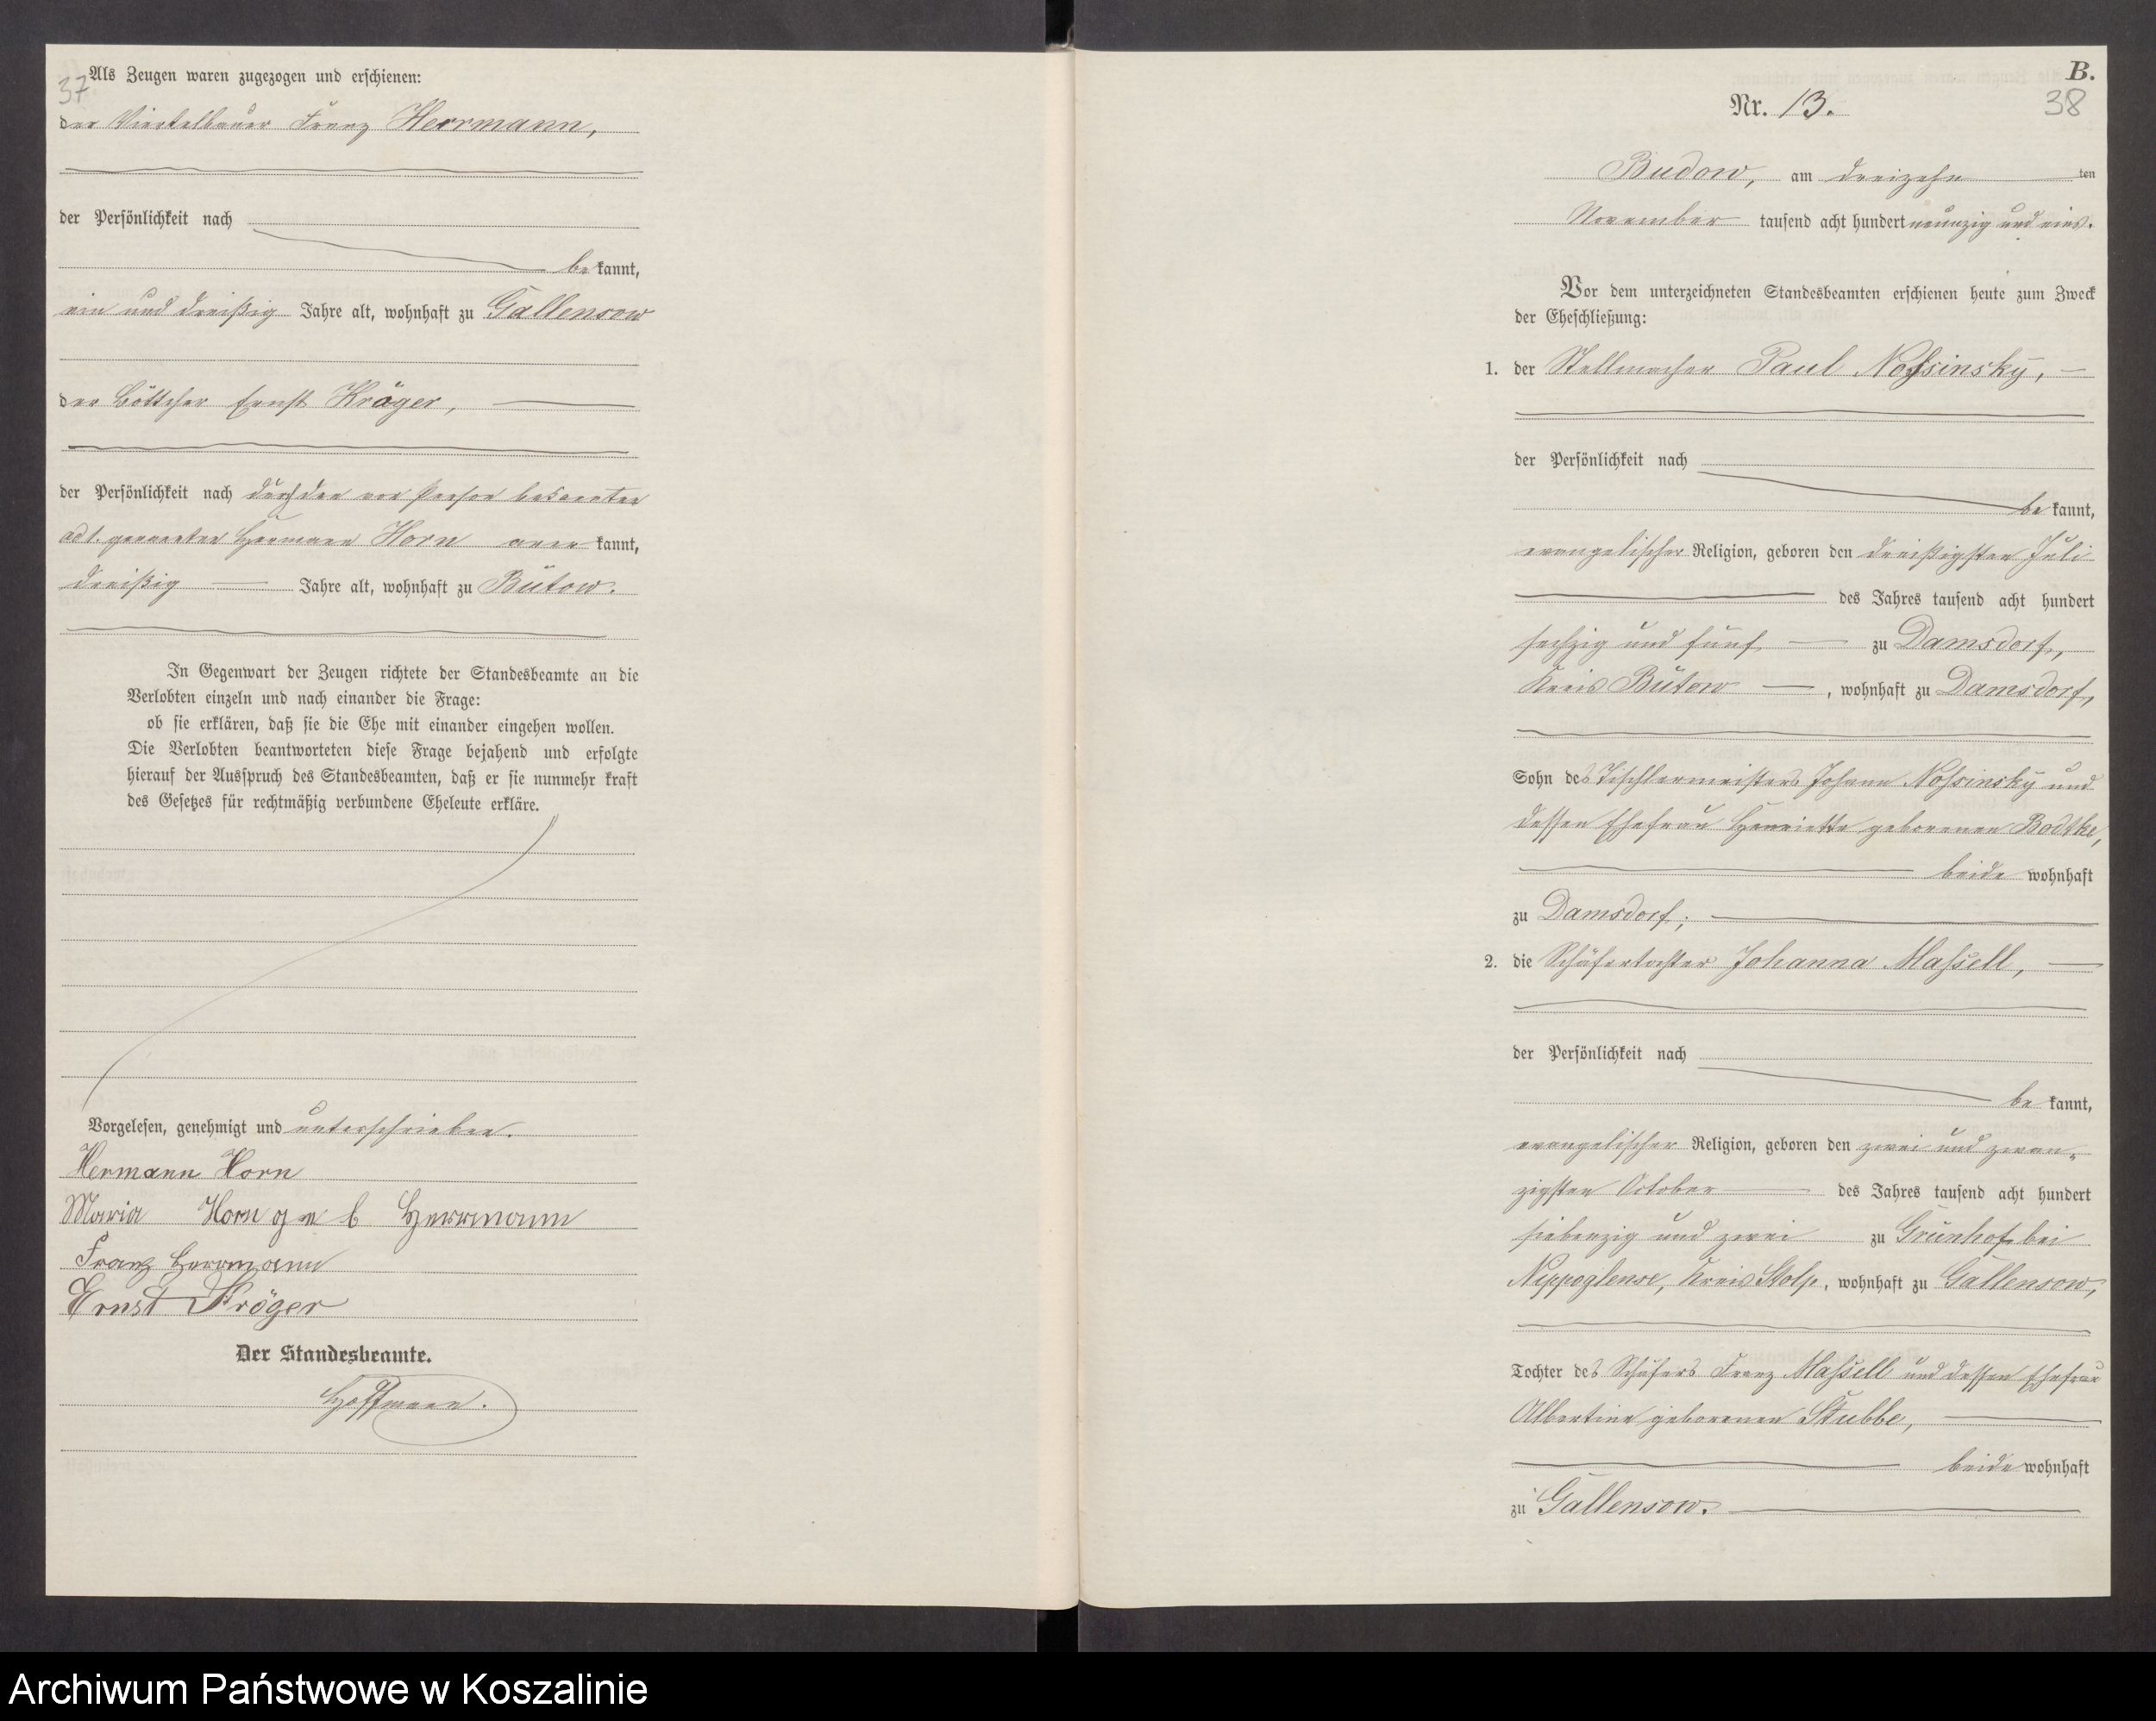 37
Als Zeugen waren zugezogen und erschienen:
der Viertelbauer Franz Herrmann,
der Persönlichkeit nach
be kannt,
ein und dreißig Jahre alt, wohnhaft zu Gallensow
der Böttcher Ernst Kröger,
der Persönlichkeit nach durch den von Person bekannten
ad 1. genannten Hermann Horn aner kannt,
dreißig Jahre alt, wohnhaft zu Bütow.
In Gegenwart der Zeugen richtete der Standesbeamte an die
Verlobten einzeln und nach einander die Frage:
ob sie erklären, daß sie die Ehe mit einander eingehen wollen.
Die Verlobten beantworteten diese Frage bejahend und erfolgte
hierauf der Ausspruch des Standesbeamten, daß er sie nunmehr kraft
des Gesetzes für rechtmäßig verbundene Eheleute erkläre.
Vorgelesen, genehmigt und unterschrieben.
Hermann Horn
Maria Horn geb Herrmann
Franz Herrmann
Ernst Kröger
Der Standesbeamte.
Hoffmann.
B.
38
Nr. 13.
Budow, am dreizehn ten
November tausend acht hundert neunzig und eins.
Vor dem unterzeichneten Standesbeamten erschienen heute zum Zweck
der Eheschließung:
1. der Stellmacher Paul Nossinsky,
der Persönlichkeit nach
be kannt,
evangelischer Religion, geboren den dreißigsten Juli
des Jahres tausend acht hundert
sechzig und fünf zu Damsdorf,
Kreis Bütow, wohnhaft zu Damsdorf,
Sohn des Tischlermeisters Johann Nossinsky und
dessen Ehefrau Henriette geborenen Bodtke,
beide wohnhaft
zu Damsdorf;
2. die Schäfertochter Johanna Massell,
der Persönlichkeit nach
be kannt,
evangelischer Religion, geboren den zwei und zwan-
zigsten October des Jahres tausend acht hundert
siebenzig und zwei zu Grünhof bei
Nippoglense, Kreis Stolp, wohnhaft zu Gallensow,
Tochter des Schäfers Franz Massell und dessen Ehefrau
Albertine geborenen Stubbe,
beide wohnhaft
zu Gallensow.
Archiwum Państwowe w Koszalinie